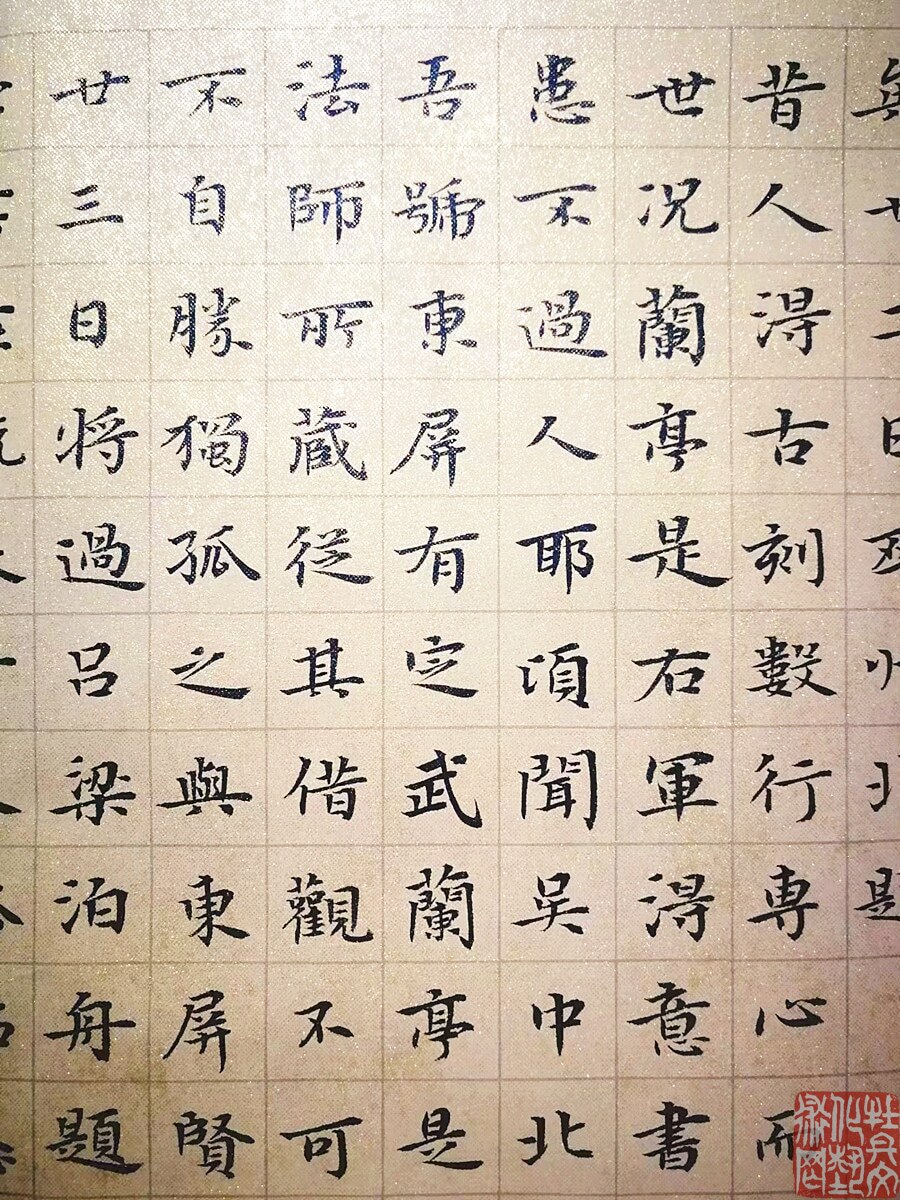 昔人得古刻數行專心而
世况蘭亭是右軍得意書
患不過人耶頃聞吴中北
吾號東屏有定武蘭亭是
法師所藏從其借觀不可
不自勝獨孤之與東屏賢
廿三日将過吕梁泊舟題